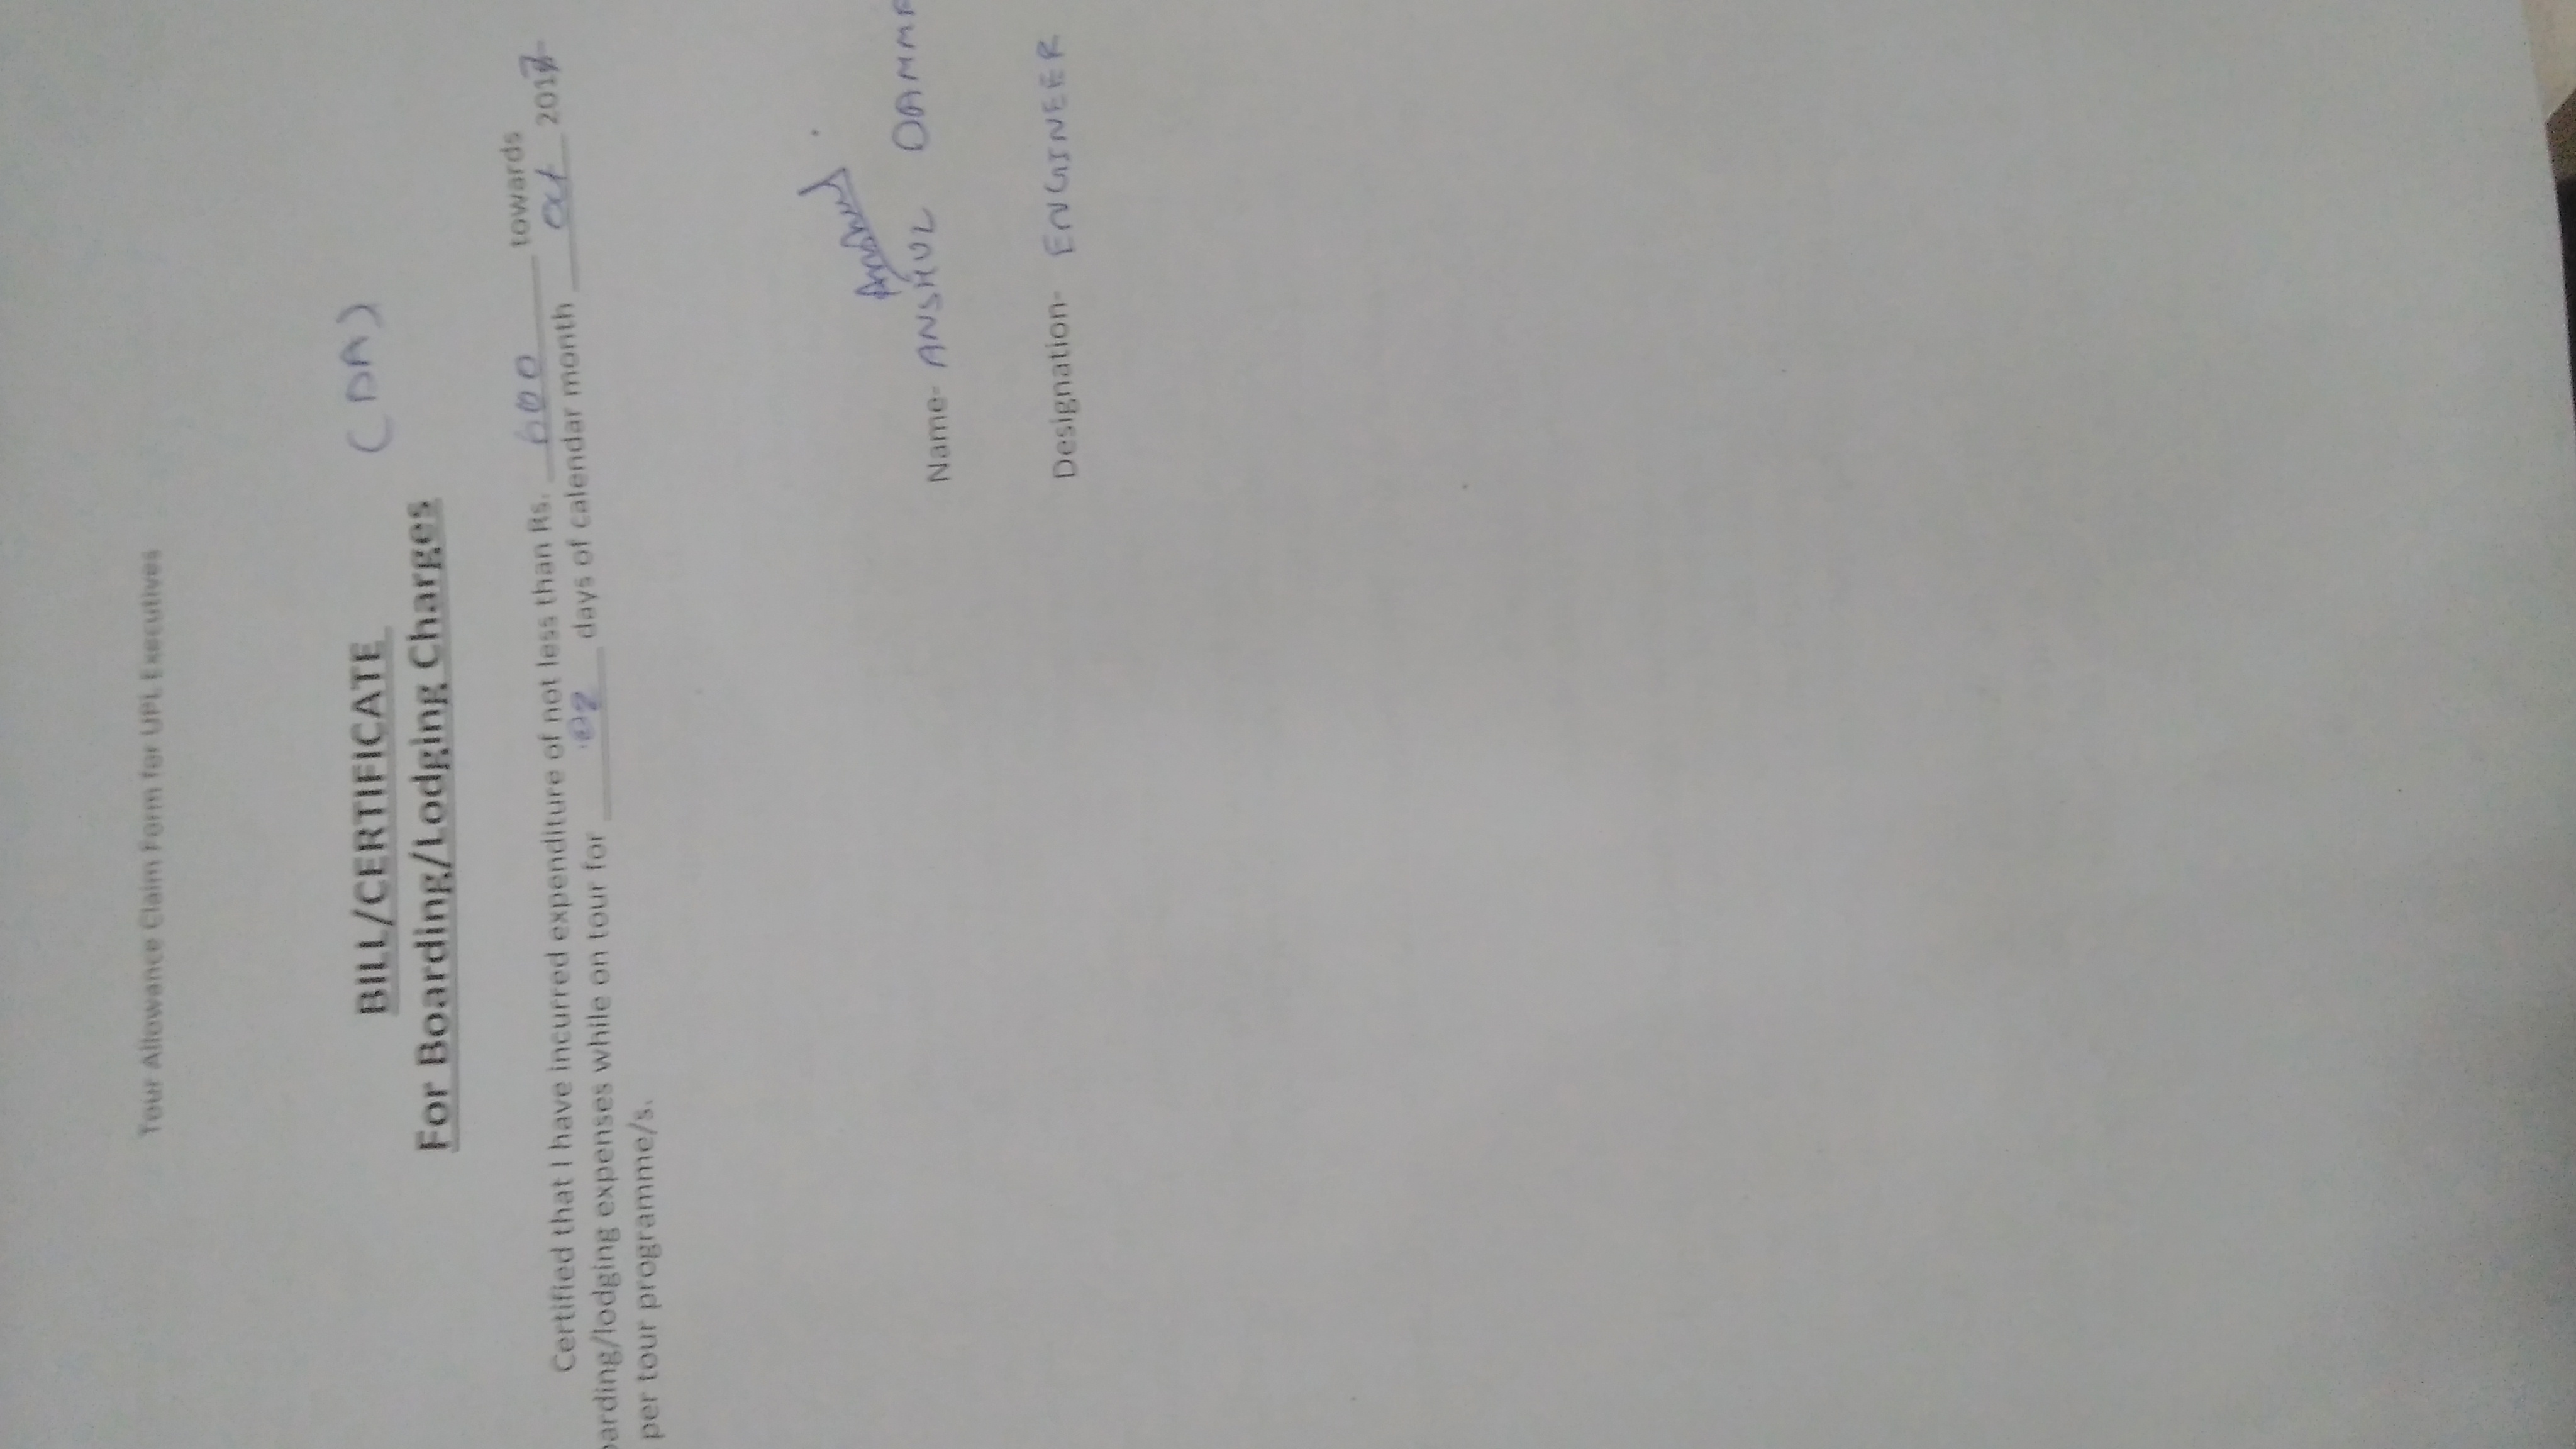 Tour Allowance Claim Form for UPL Executives
(DA)
BILL/CERTIFICATE
For Boarding/Lodging Charges
Certified that I have incurred expenditure of not less than Rs. 600 towards
oarding/lodging expenses while on tour for 02 days of calendar month Oct 2017
per tour programme/s.
Name- ANSHUL
Designation- ENGINEER